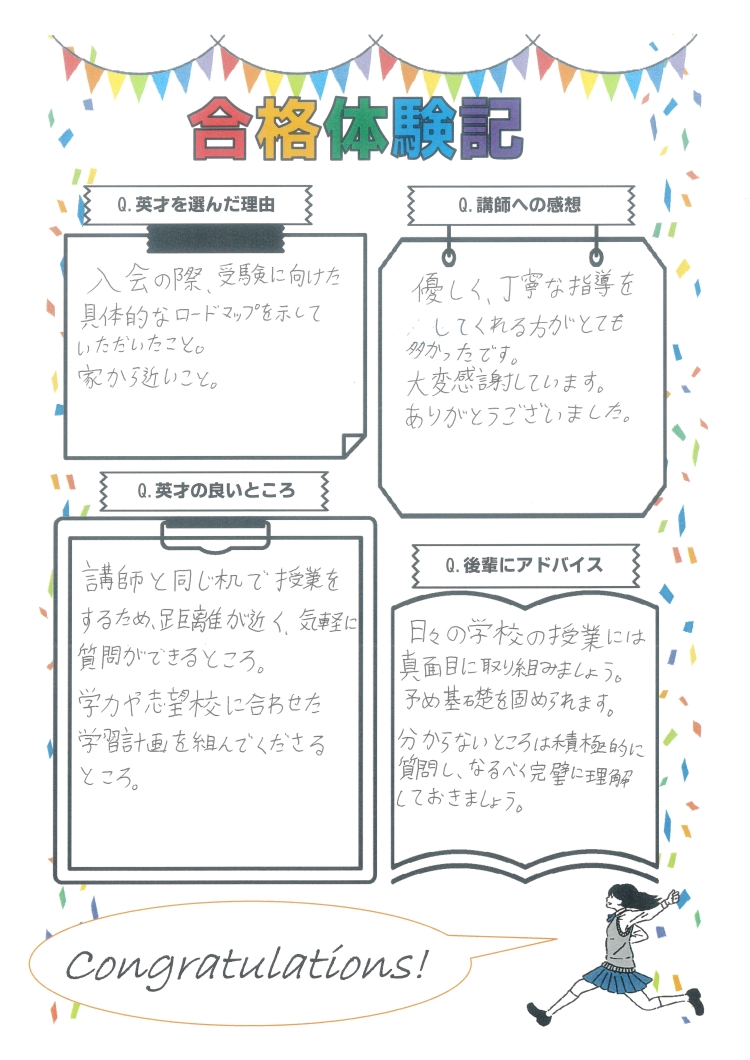 合格体験記
Q.英才を選んだ理由
入会の際、受験に向けた
具体的なロードマップを示して
いただいたこと。
家から近いこと。
Q.講師への感想
優しく、丁寧な指導を
してくれる方がとても
多かったです。
大変感謝しています。
ありがとうございました。
Q.英才の良いところ
講師と同じ机で授業を
するため、距離が近く、気軽に
質問ができるところ。
学力や志望校に合わせた
学習計画を組んでくださる
ところ。
Q.後輩にアドバイス
日々の学校の授業には
真面目に取り組みましょう。
予め基礎を固められます。
分からないところは積極的に
質問し、なるべく完璧に理解
しておきましょう。
Congratulations!